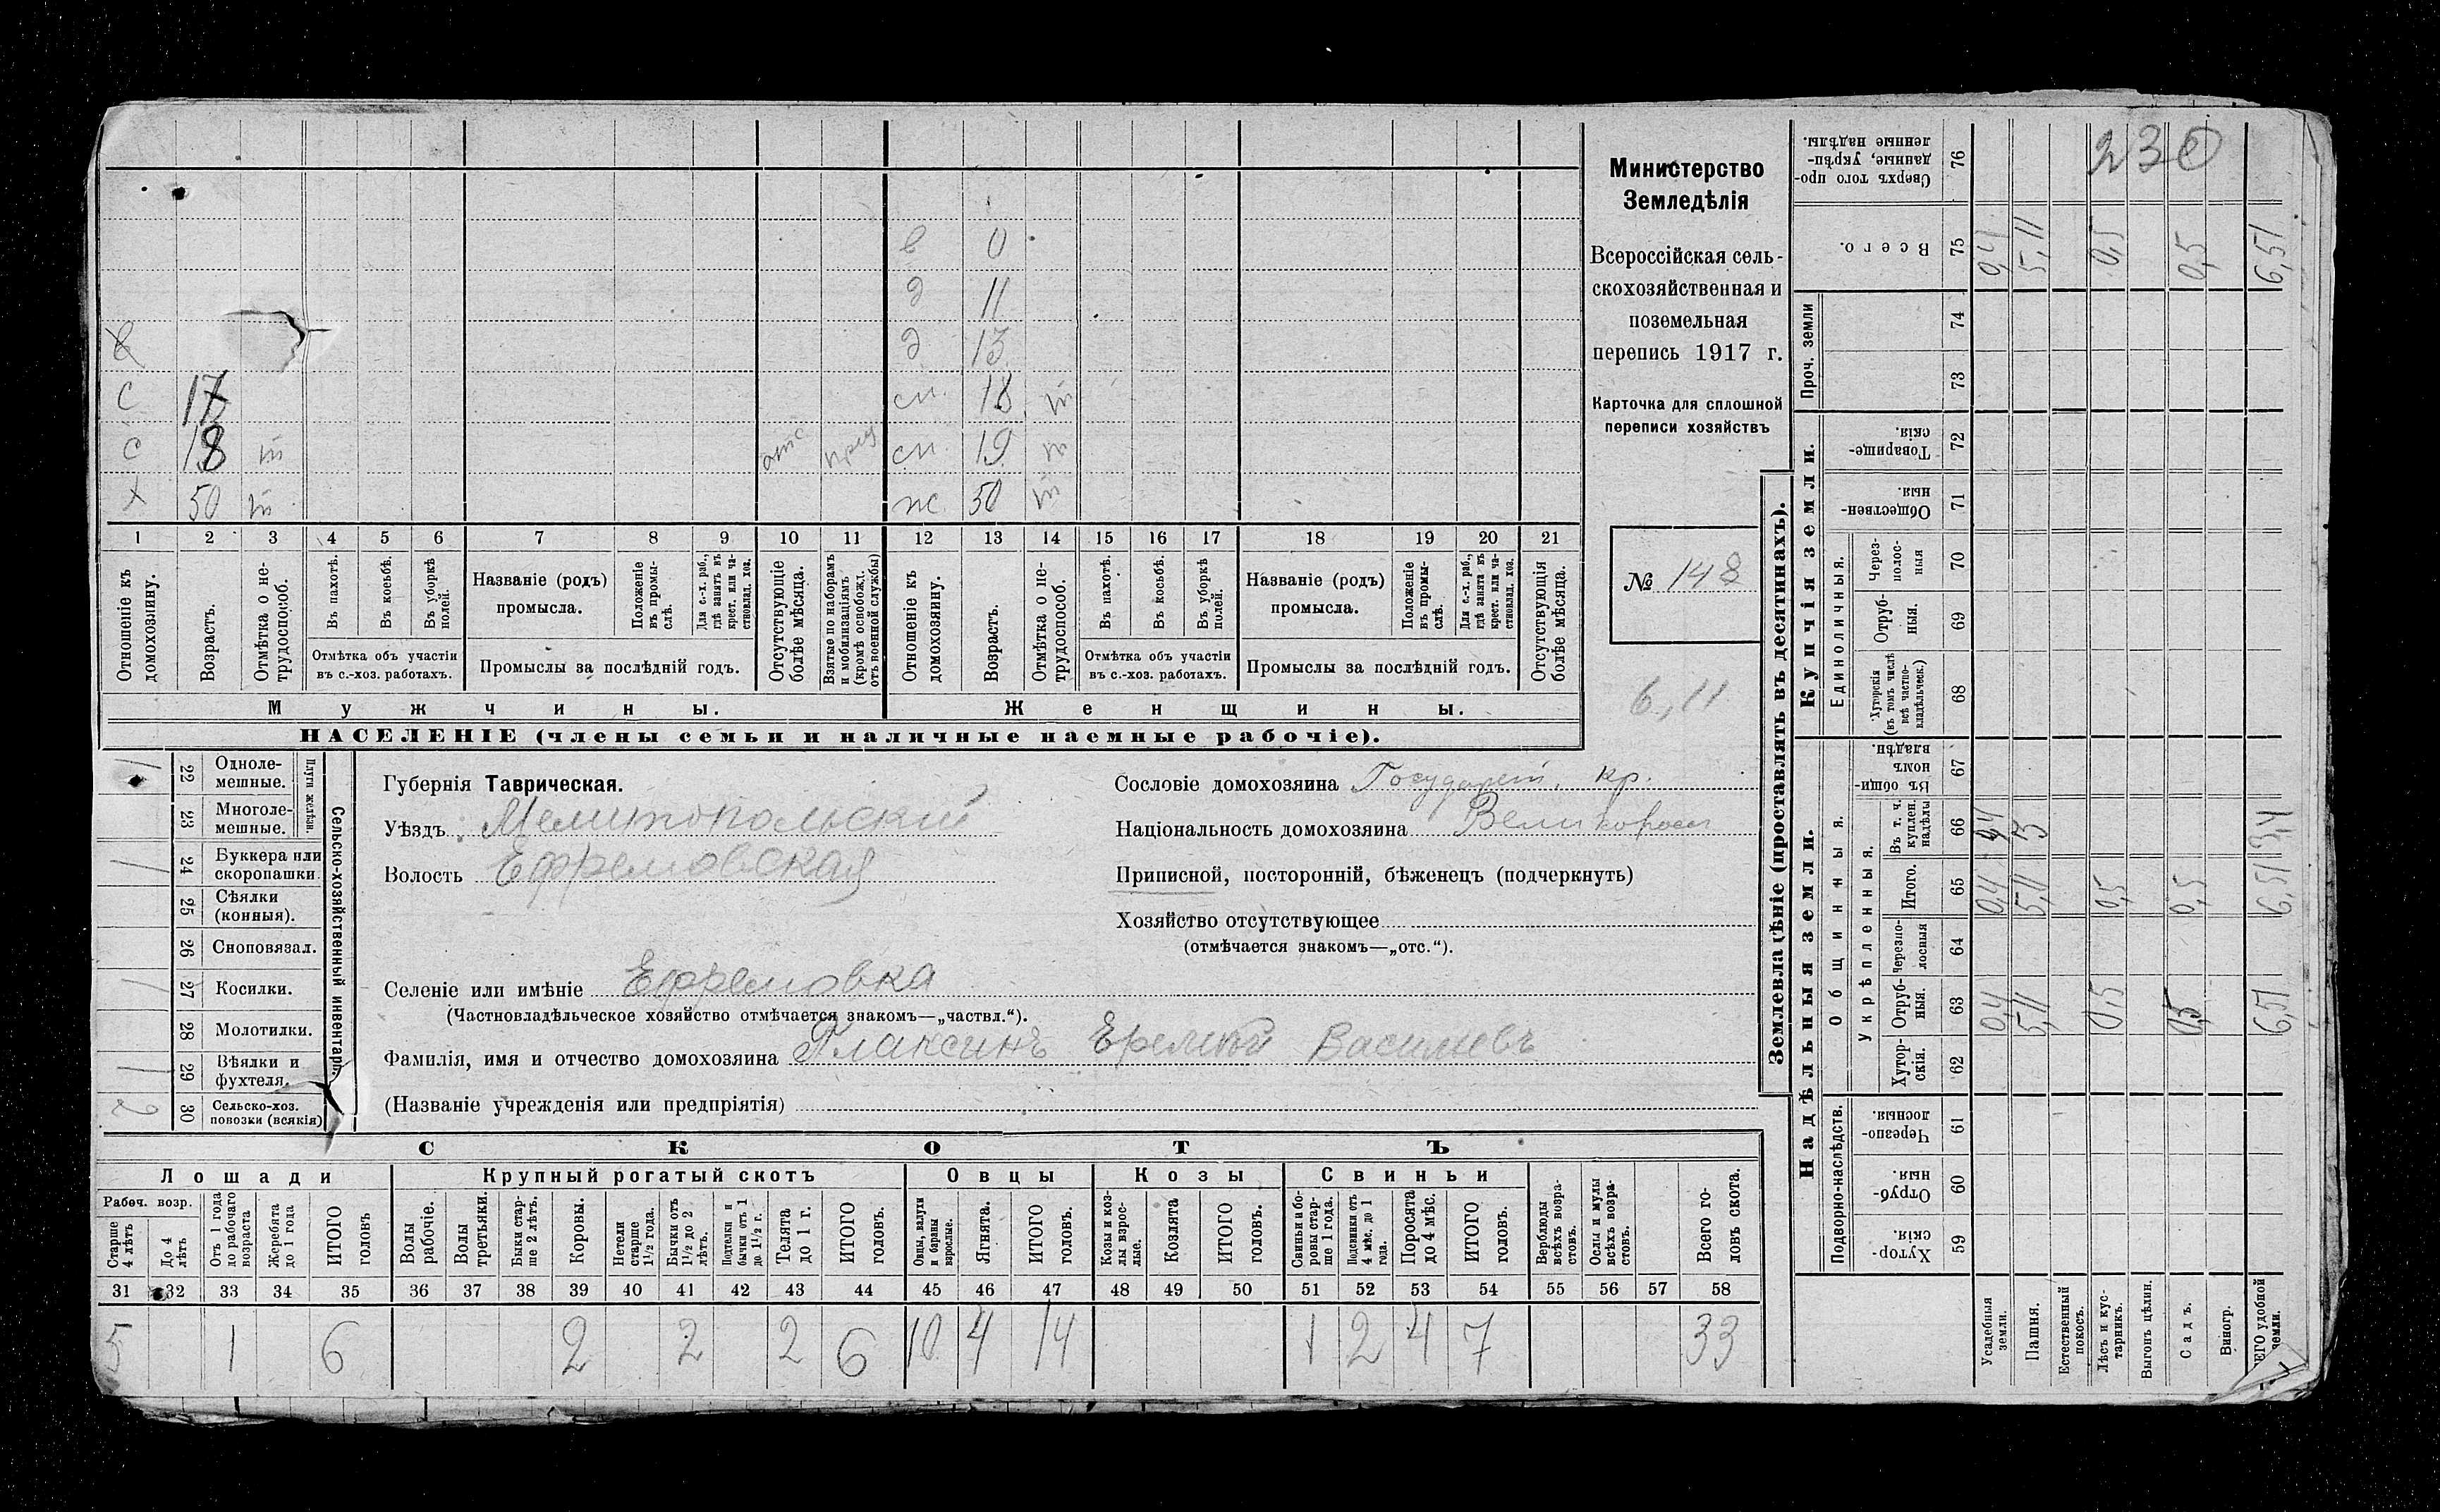 230
Министерство
Земледѣлія
Всероссійская сель-
скохозяйственная и
поземельная
перепись 1917 г.
Карточка для сплошной
переписи хозяйствъ
№ 148
6,11
в 0
д 11
д 13
с 17 сн. 18 н
с 18 н отс сн. 19 н
х 50 н ж 50 н
1 2 3 4 5 6 7 8 9 10 11 12 13 14 15 16 17 18 19 20 21
Отношеніе къ домохозяину.
Возрастъ.
Отмѣтка о не-трудоспособ.
Въ пахотѣ.
Въ косьбѣ.
Въ уборкѣ полей.
Отмѣтка объ участіи
въ с.-хоз. работахъ.
Названіе (родъ)
промысла.
Положеніе въ промы-слѣ.
Для с.-х. раб., гдѣ занятъ въ крест. или ча-стновлад. хоз.
Промыслы за послѣдній годъ.
Отсутствующіе болѣе мѣсяца.
Взятые по наборамъ и мобилизаціямъ (кромѣ освобожд. отъ военной службы)
Отношеніе къ домохозяину.
Возрастъ.
Отмѣтка о не-трудоспособ.
Въ пахотѣ.
Въ косьбѣ.
Въ уборкѣ полей.
Отмѣтка объ участіи
въ с.-хоз. работахъ.
Названіе (родъ)
промысла.
Положеніе въ промы-слѣ.
Для с.-х. раб., гдѣ занята въ крест. или ча-стновлад. хоз.
Промыслы за послѣдній годъ.
Отсутствующія болѣе мѣсяца.
Мужчины. Женщины.
НАСЕЛЕНІЕ (члены семьи и наличные наемные рабочіе).
Сельско-хозяйственный инвентарь.
Плуги желѣзн.
1 22 Одноле-мешные.
23 Многоле-мешные.
1 24 Буккера или скоропашки.
25 Сѣялки (конныя).
26 Сноповязал.
1 27 Косилки.
28 Молотилки.
1 29 Вѣялки и фухтеля.
2 30 Сельско-хоз. повозки (всякія)
Губернія Таврическая.
Уѣздъ Мелитопольскій
Волость Ефремовская
Селеніе или имѣніе Ефремовка
(Частновладѣльческое хозяйство отмѣчается знакомъ—„частвл.“).
Фамилія, имя и отчество домохозяина Плаксинъ Еремей Васильевъ
(Названіе учрежденія или предпріятія)
Сословіе домохозяина Государст. кр.
Національность домохозяина Великоросс
Приписной, посторонній, бѣженецъ (подчеркнуть)
Хозяйство отсутствующее
(отмѣчается знакомъ—„отс.“).
СКОТЪ
Лошади Крупный рогатый скотъ Овцы Козы Свиньи
Рабоч. возр.
Старше 4 лѣтъ
До 4 лѣтъ
Отъ 1 года до рабочаго возраста
Жеребята до 1 года
ИТОГО головъ
Волы рабочіе.
Волы третьяки.
Быки стар-ше 2 лѣтъ.
Коровы.
Нетели старше 1½ года.
Бычки отъ 1½ до 2 лѣтъ.
Подтелки и бычки отъ 1 до 1½ г.
Телята до 1 г.
ИТОГО головъ.
Овцы, валухи и бараны взрослые.
Ягнята.
ИТОГО головъ.
Козы и коз-лы взрос-лые.
Козлята
ИТОГО головъ.
Свиньи и бо-ровы стар-ше 1 года.
Подсвинки отъ 4 мѣс. до 1 года.
Поросята до 4 мѣс.
ИТОГО головъ.
Верблюды всѣхъ возра-стовъ.
Ослы и мулы всѣхъ возра-стовъ.
Всего го-ловъ скота.
31 32 33 34 35 36 37 38 39 40 41 42 43 44 45 46 47 48 49 50 51 52 53 54 55 56 57 58
5 1 6 2 2 2 6 10 4 14 1 2 4 7 33
Землевладѣніе (проставлять въ десятинахъ).
Надѣльныя земли. Купчія земли. Проч. земли
Подворно-наслѣдств.
Общинныя.
Укрѣпленныя.
Единоличныя.
59 Хутор-скія.
60 Отруб-ныя.
61 Черезпо-лосныя.
62 Хутор-скія.
63 Отруб-ныя. 0,4 5,11 0,5 0,5 6,51
64 Черезпо-лосныя
65 Итого. 0,4 5,11 0,5 0,5 6,51
66 Въ т. ч. куплен. надѣлы 0,4 3 3,4
67 Въ общи-номъ владѣн.
68 Хуторскія (въ томъ числѣ всѣ частно-владѣльческ.)
69 Отруб-ныя.
70 Через-полос-ныя
71 Обществен-ныя.
72 Товарище-скія.
73
74
75 Всего. 0,4 5,11 0,5 0,5 6,51
76 Сверхъ того про-данные, укрѣп-ленные надѣлы.
Усадебныя земли.
Пашня.
Естественный покосъ.
Лѣсъ и кус-тарникъ.
Выгонъ цѣлин.
Садъ.
Виногр.
ЕГО удобной земли.